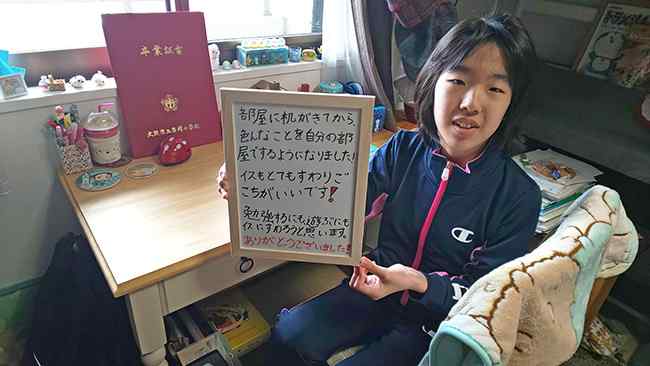 卒業証書
部屋に机がきてから、
色んなことを自分の部
屋でするようになりました!
イスもとてもすわりご
こちがいいです!
勉強するにも遊ぶにも
イスにすわろうと思います。
ありがとうございました!!
Champion